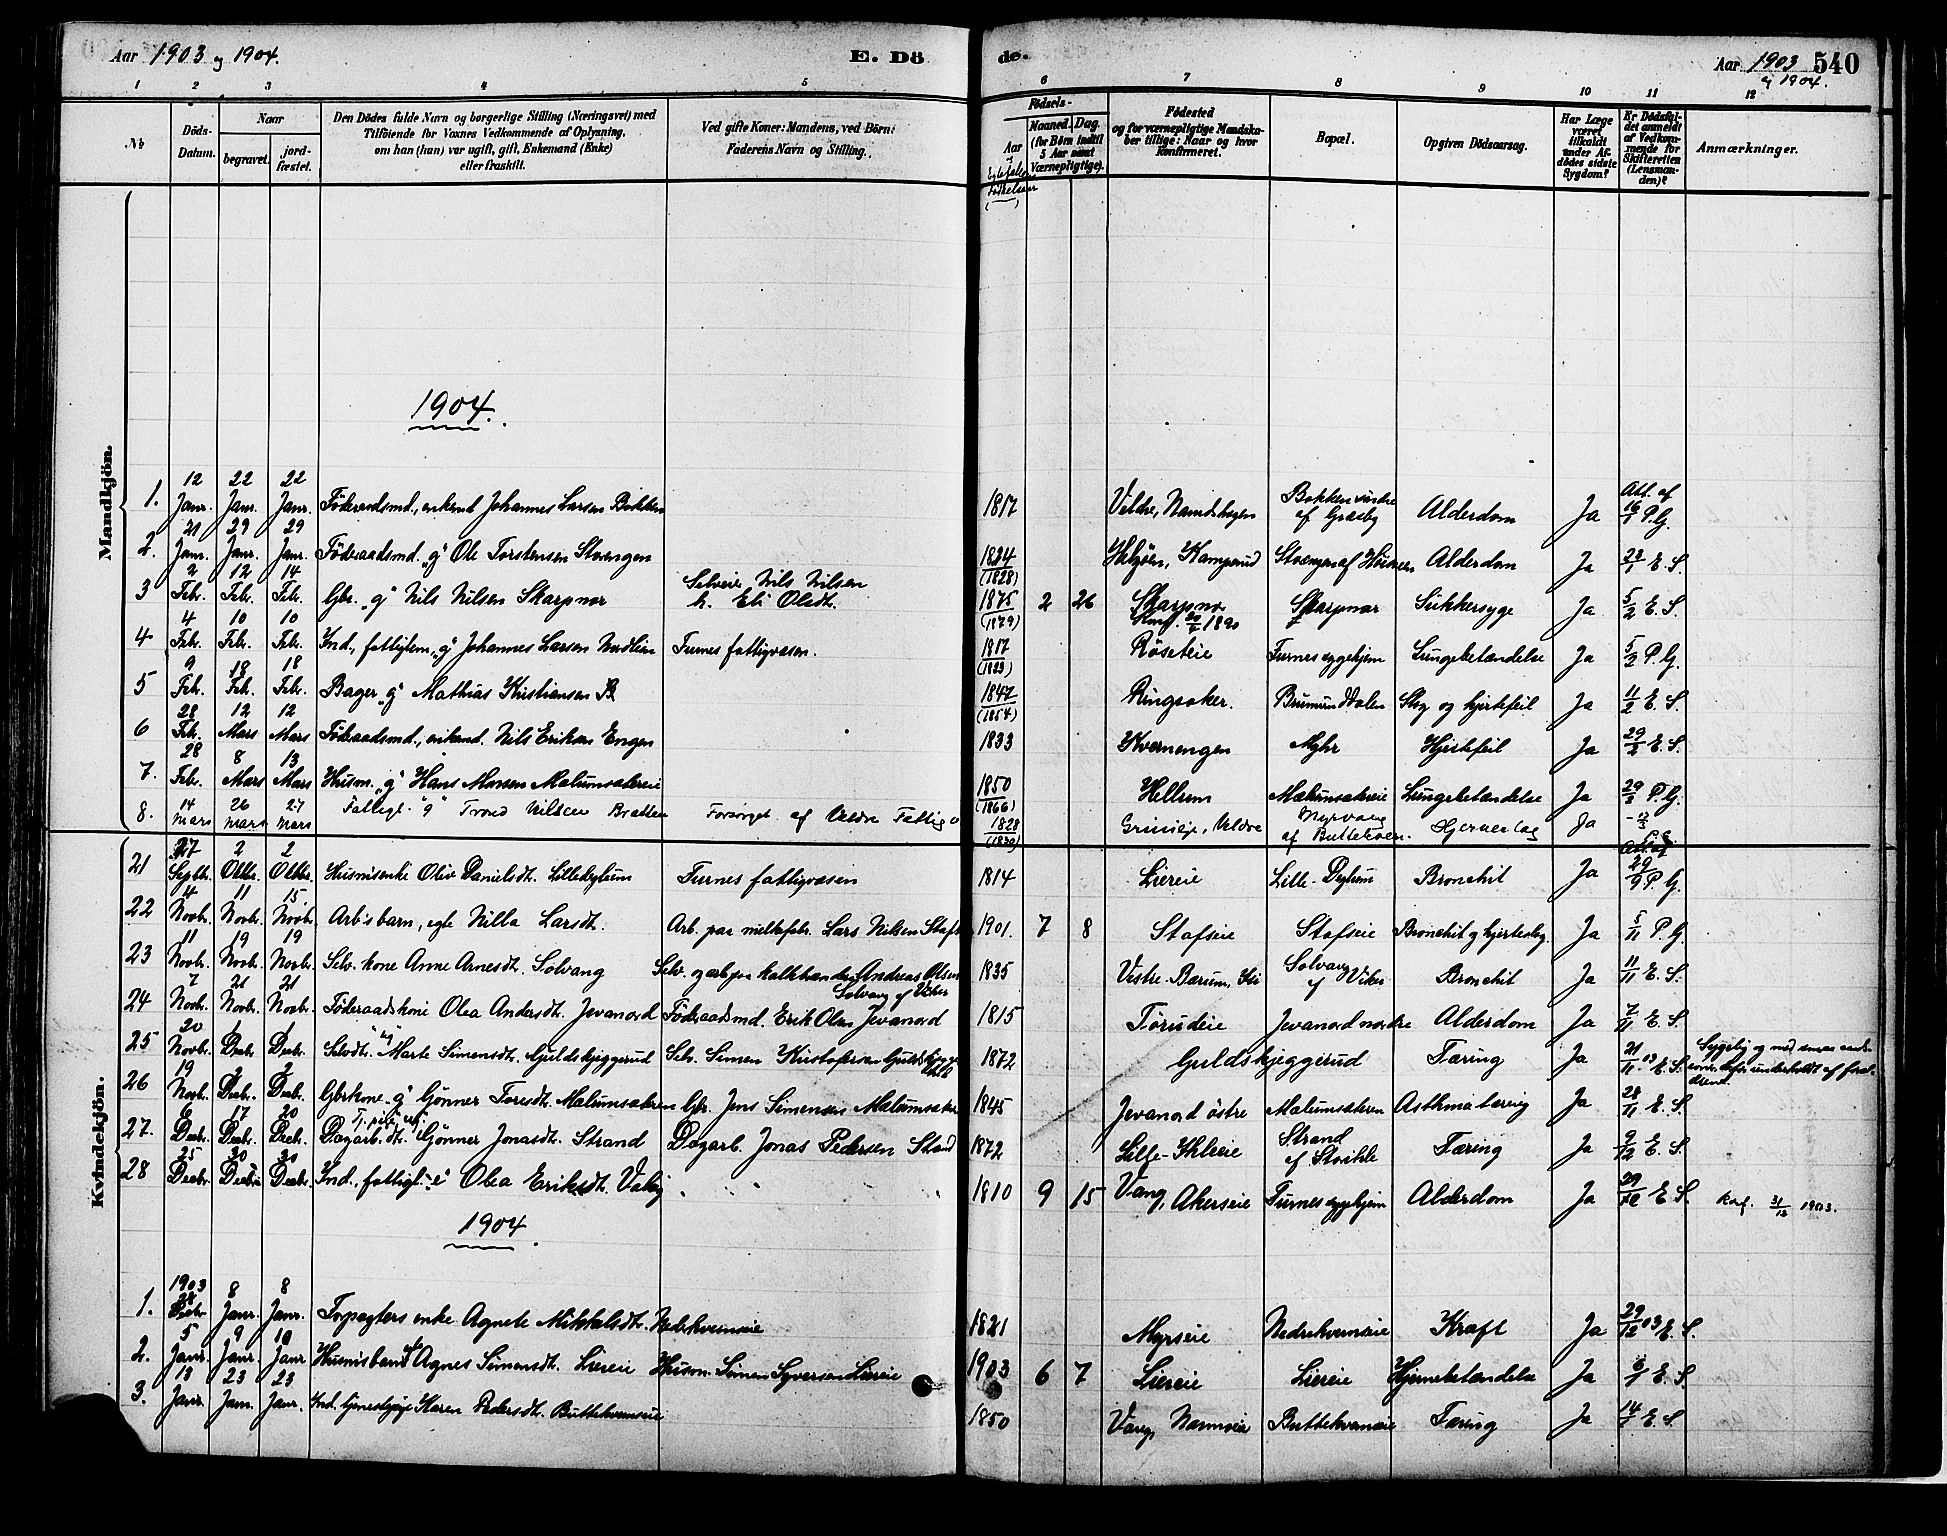 Aar 1903 og 1904.
E. Dö
de.
Aar 1903 og 1904.
540
1 2 3 4 5 6 7 8 9 10 11 12
No.
Döds-Datum.
Naar
begravet.
jordfæstet.
Den Dödes fulde Navn og borgerlige Stilling (Næringsvei) med
Tilföiende for Voxnes Vedkommende af Oplysning,
om han (hun) var ugift, gift, Enkemand (Enke)
eller fraskilt.
Ved gifte Koner: Mandens, ved Börn:
Faderens Navn og Stilling.
Födsels-
Aar
Maaned. Dag.
(for Börn indtil
5 Aar samt
Værnepligtige).
Födested
og for værnepligtige Mandska-
ber tillige: Naar og hvor
konfirmeret.
Bopæl.
Opgiven Dödsaarsag.
Har Læge
været
tilkaldt
under Af-
dödes sidste
Sygdom?
Er Dödsfal-
det anmeldt
af Vedkom-
mende for
Skifteretten
(Lensman-
den)?
Anmærkninger.
Mandkjön.
1904.
1. 12 Janr. 22 Janr. 22 Janr. Föderaadsmd., enkemd Johannes Larsen Bakken 1817 Veldre, Bakken søndre af Græsby Alderdom Ja Att. af 16/1 P.G.
2. 21 Janr. 29 Janr. 29 Janr. Föderaadsmd. "g" Ole Torstensen Stavengen 1824 (1828) Alderdom Ja 23/1 E.S.
3 2 Febr. 12 Febr. 14 Febr. Gbr. "g" Nils Nilsen Skarpnor Selveier Nils Nilsen h. Eli Olsdt. 1875 (1879) 2 26 Skarpnor Skarpnor Sukkersyge Ja 5/2 E.S.
4 4 Febr. 10 Febr. 10 Febr. Ind., fattiglem, "g" Johannes Larsen Nordlien Furnes fattigvæsen. 1817 (1823) Røseteie Furnes sygehjem Lungebetændelse Ja 5/2 P.G.
5 9 Febr. 18 Febr. 18 Febr. Bager "g" Mathias Kristiansen B 1847 (1854) Ringsaker. Brumunddalen og hjertefeil Ja 11/2 E.S.
6 28 Febr. 12 Mars 12 Mars Föderaadsmd., enkemd. Nils Eriksen Engen 1833 Kvernengen Myhr Hjertefeil Ja 29/2 E.S.
7. 28 Febr. 8 Mars 13 Mars Husm. "g" Hans Monsen Malumsætereie 1850 (1866) Hellum Malumsætereie Lungebetændelse Ja 29/2 P.G.
8. 14 Mars 26 Mars 27 Mars Fattigl. "g" Trond Nilsen Bratten Forsörget af Veldre Fattigv 1828 (1830) Veldre Myrvang af Buttekvern. Hjerneslag Ja
Kvindekjön.
21 27 Septbr. 2 Oktbr. 2 Oktbr. Husmisenke Oliv Danielsdt. Lilledeglum Furnes fattigvæsen 1814 Liereie Lille-Deglum Bronchit Ja Att. af 29/9 P.G.
22 4 Novbr. 11 Novbr. 15 Novbr. Arb's barn, egte Nilla Larsdt. Arb. paa meltefabr. Lars Nilsen Stafs 1901. 7 8 Stafseie Stafseie Bronchit og hjertesyg. Ja 5/11 P.G.
23 11 Novbr. 19 Novbr. 19 Novbr. Selv. kone Anne Arnesdt. Solvang Selv. og Andreas Olsen Solvang af Viker 1835 Vestre Bærum, Solvang af Viker Bronchit Ja 11/11 E.S.
24 7 Novbr. 21 Novbr. 21 Novbr. Föderaadskone Olea Andersdt. Jevanord Föderaadsmd. Erik Olsen Jevanord 1815 Torudeie Jevanord nordre Alderdom Ja 7/11 E.S.
25 20 Novbr. 1 Decbr. 1 Decbr. Selvdt. "ug" Marte Simensdt. Guldskjeggerud Selv. Simen Kristofersen 1872 Guldskjeggerud Tæring Ja 21/11 03 E.S.
26 19 Novbr. 2 Decbr. 2 Decbr. Gbrkone "g" Gønner Toresdt. Malumsæteren Gbr. Jens Simensen Malumsæter 1845 Jevanord østre Malumsæteren Asthma tæring Ja 28/11 E.S.
27. 6 Decbr. 17 Decbr. 20 Decbr. Dagarb.dt. Gønner Jonasdt. Strand Dagarb. Jonas Pedersen Strand 1872 Strand Tæring Ja 9/12 E.S.
28 25 Decbr. 30 Decbr. 30 Decbr. Ind., fattigl. Olea Eriksdt. 1810 9 15 Vang, Akerseie Furnes sygehjem Alderdom Ja 29/12 E.S. 31/12 1903.
1904
1. 1903 28 Decbr. 8 Janr. 8 Janr. Forpagters enke Agnete Mikkelsdt. Nedrekverneie 1821 Myrseie Nedrekverneie Kræft Ja 29/12 03 E.S.
2. 5 Janr. 9 Janr. 10 Janr. Husmisbarn Agnes Simensdt. Liereie Husm. Simen Syversen Liereie 1903 6 7 Liereie Liereie Hjernebetændelse Ja 6/1 E.S.
3. 13 Janr. 23 Janr. 23 Janr. Ind. tjenestepige Karen Pedersdt. Buttekverneie 1850 Vang, Buttekverneie Tæring Ja 14/1 E.S.